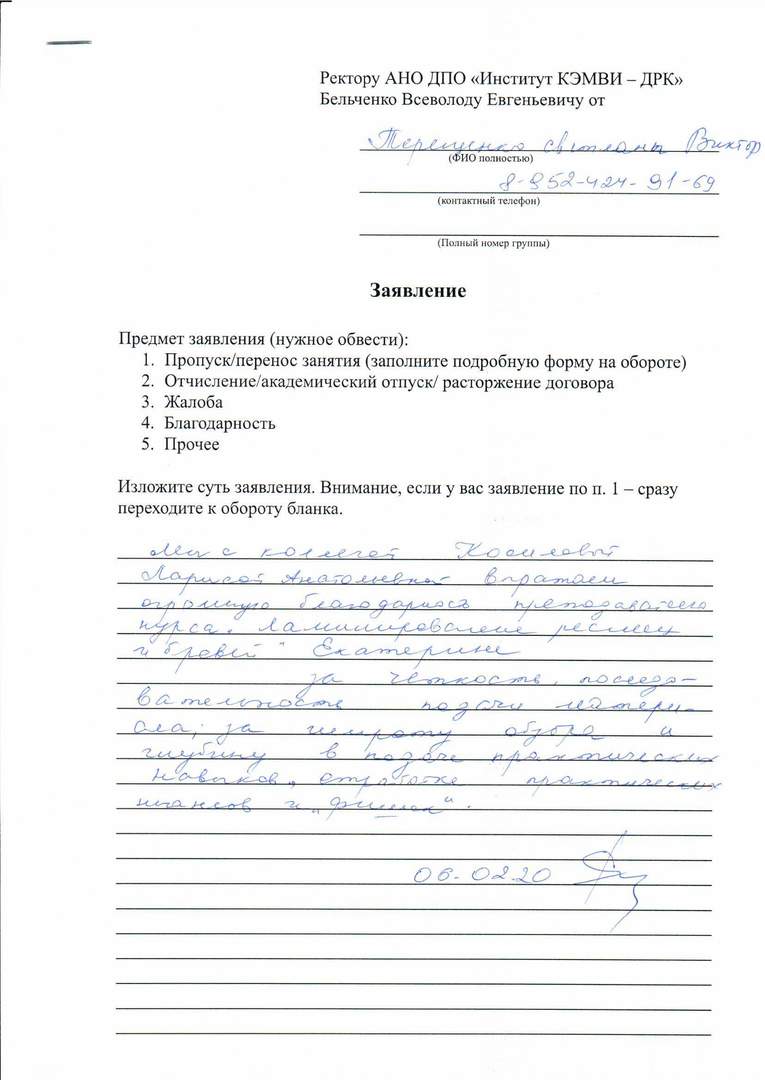 Ректору АНО ДПО «Институт КЭМВИ – ДРК»
Бельченко Всеволоду Евгеньевичу от
Терещенко Светланы Виктор
(ФИО полностью)
8-952-424-91-69
(контактный телефон)
(Полный номер группы)
Заявление
Предмет заявления (нужное обвести):
1. Пропуск/перенос занятия (заполните подробную форму на обороте)
2. Отчисление/академический отпуск/ расторжение договора
3. Жалоба
4. Благодарность
5. Прочее
Изложите суть заявления. Внимание, если у вас заявление по п. 1 – сразу
переходите к обороту бланка.
Мы с коллегой Косиловой
Ларисой Анатольевной выражаем
огромную благодарность преподавателю
курса „Ламинирование ресниц
и бровей" Екатерине
за четкость, последо-
вательность подачи матери-
ала; за широту обзора и
глубину в подаче практических
навыков, отработке практических
нюансов и „фишек".
06.02.20